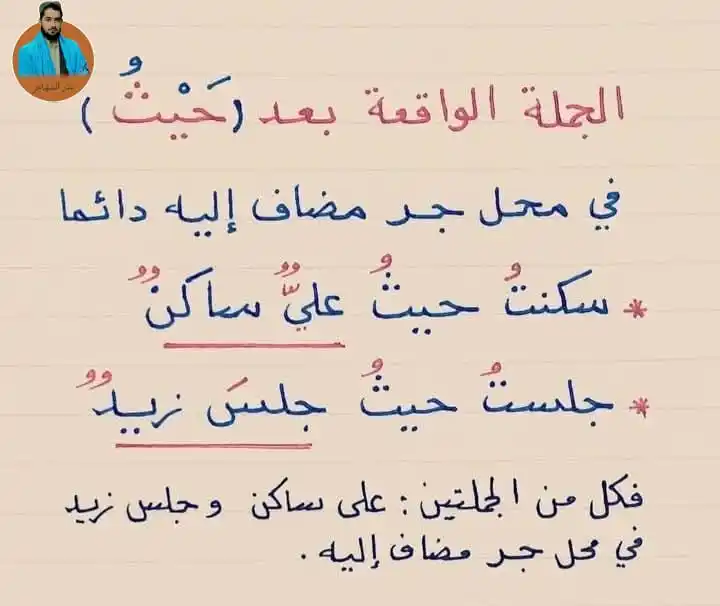 الجملة الواقعة بعد (حَيْثُ)
في محل جر مضاف إليه دائما
* سكنتُ حيثُ عليٌّ ساكنٌ
* جلستُ حيثُ جلسَ زيدٌ
فكل من الجملتين : على ساكن وجلس زيد
في محل جر مضاف إليه .